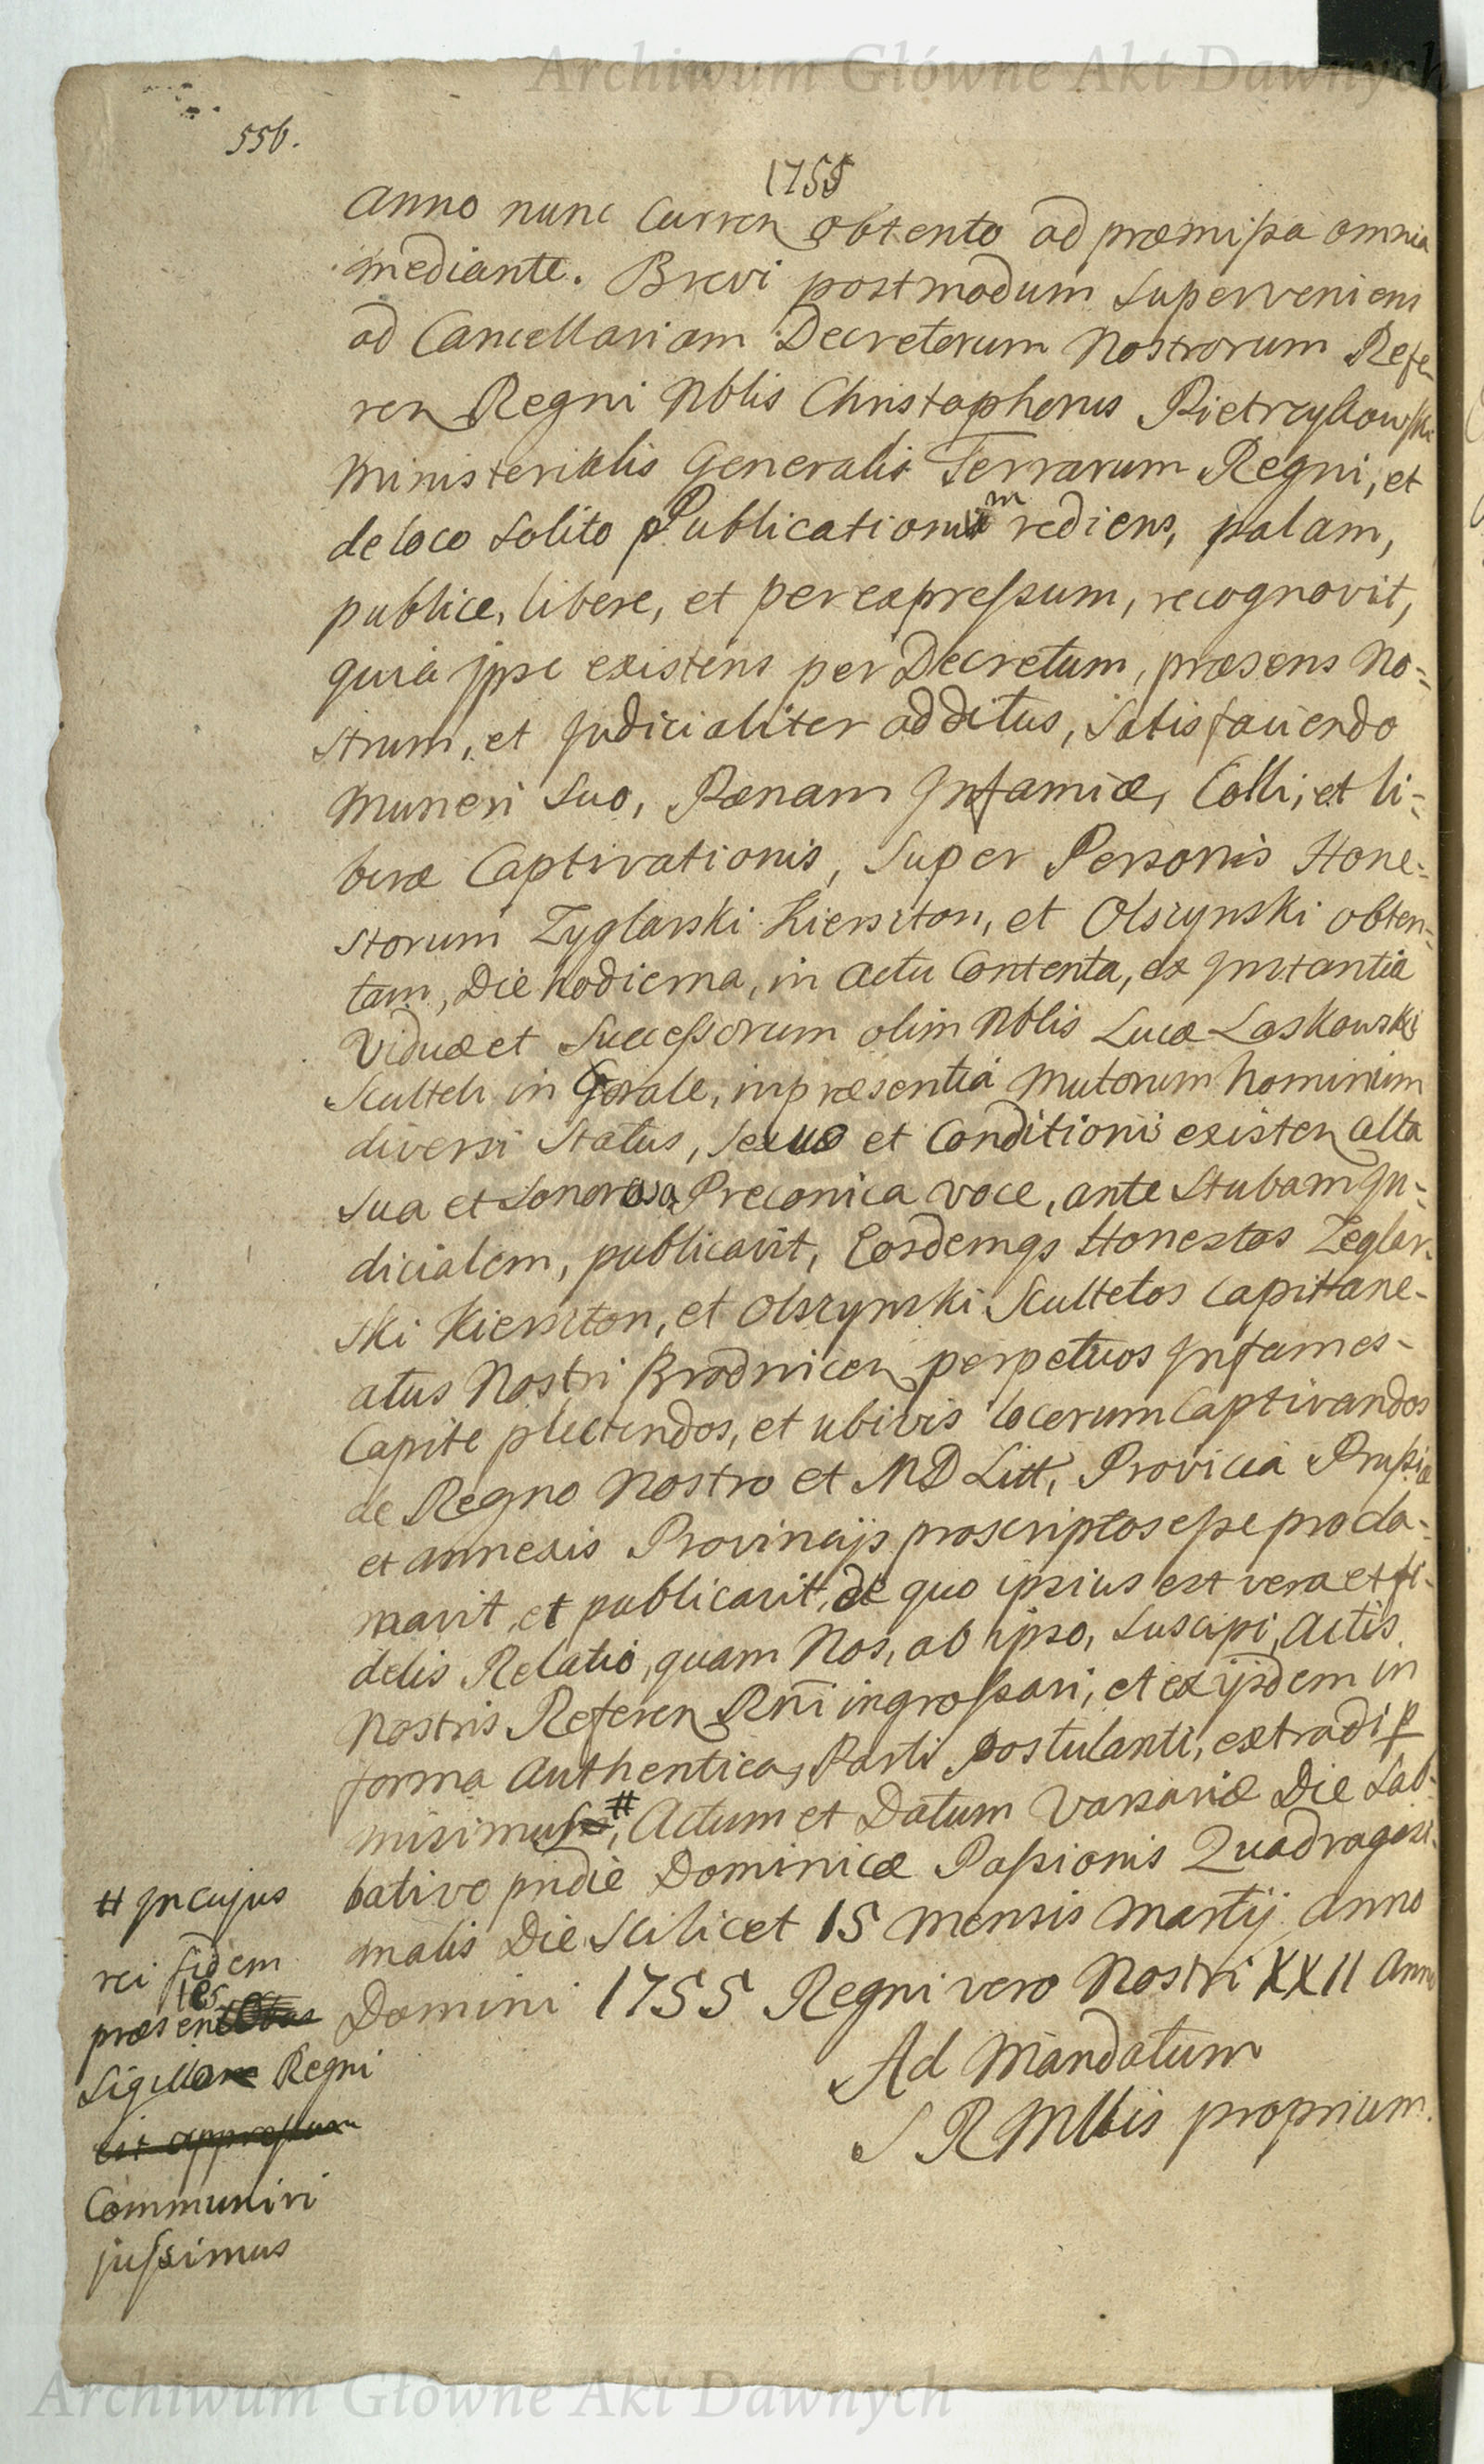 Archiwum Główne Akt Dawnych
556.
1755
Anno nunc Curren obtento ad præmissa omnia
mediante. Brevi postmodum superveniens
ad Cancellariam Decretorum Nostrorum Refe-
ren Regni Nblis Christophorus Pietrzykowski
Ministerialis Generalis Terrarum Regni, et
de loco solito Publicationum rediens, palam,
publice, libere, et per expressum, recognovit,
quia ipse existens per Decretum, præsens No-
strum, et Judicialiter additus, satisfaciendo
Muneri suo, Pænam Infamiæ, Colli, et li-
beræ Captivationis, super Personis Hone-
storum Zyglarski Kierszton, et Olszynski obten-
tam, Die hodierna, in Actu Contenta, ex Instantia
Viduæ et Successorum olim Nblis Lucæ Laskowski
Sculteti in Gorale, in præsentia Multorum hominum
diversi Status, Sexus et Conditionis existen alta
sua et sonorosa Preconica voce, ante Stubam Ju-
dicialem, publicavit, Eosdemqs Honestos Zeglar-
ski Kierszton, et Olszynski Scultetos Capitane-
atus Nostri Brodnicen perpetuos Infames
Capite plectendos, et ubivis locorum Captivandos
de Regno Nostro et MD Litt, Provicia Prussiæ
et annexis Provincijs proscriptos esse procla-
mavit, et publicavit, de quo ipsius est vera et fi-
delis Relatio, quam Nos, ab ipso, suscipi, Actis
Nostris Referen Rni ingrossari, et ex ijsdem in
forma Authentica, Parti Postulanti, extradi p
misimus #, Actum et Datum Varsaviæ Die Sab-
bativo pridie Dominicæ Passionis Quadragesi-
malis Die Scilicet 15 Mensis Martij Anno
Domini 1755 Regni vero Nostri XXII Anno
Ad Mandatum
S R Mttis proprium.
# In cujus
rei fidem
præsentes
Sigillo Regni
est appressum
Communiri
jussimus
Archiwum Główne Akt Dawnych